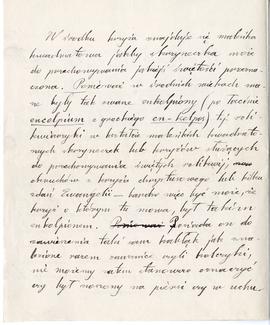 W środku krzyża znajduje się maleńka
kwadratowa jakby skrzyneczka może
do przechowywania jakiejś świętości przezna-
czona. Ponieważ w średnich wiekach zna-
ne były tak zwane enkolpiony (po łacinie
encolpium z greckiego en-kolpos) tj. reli-
kwiarzyki w kształcie maleńkich kwadratowych
skrzyneczek lub krzyżów służących
do przechowywania świętych relikwij,
lub kilku
zdań Ewangelii – bardzo więc być może, że
krzyż o którym tu mowa, był takim
enkolpionem. Ponieważ Posiada on do
zawieszenia taki sam jak
razem zausznice czyli kolczyki,
nie możemy zatem stanowczo oznaczyć
czy był noszony na piersi czy w uchu.